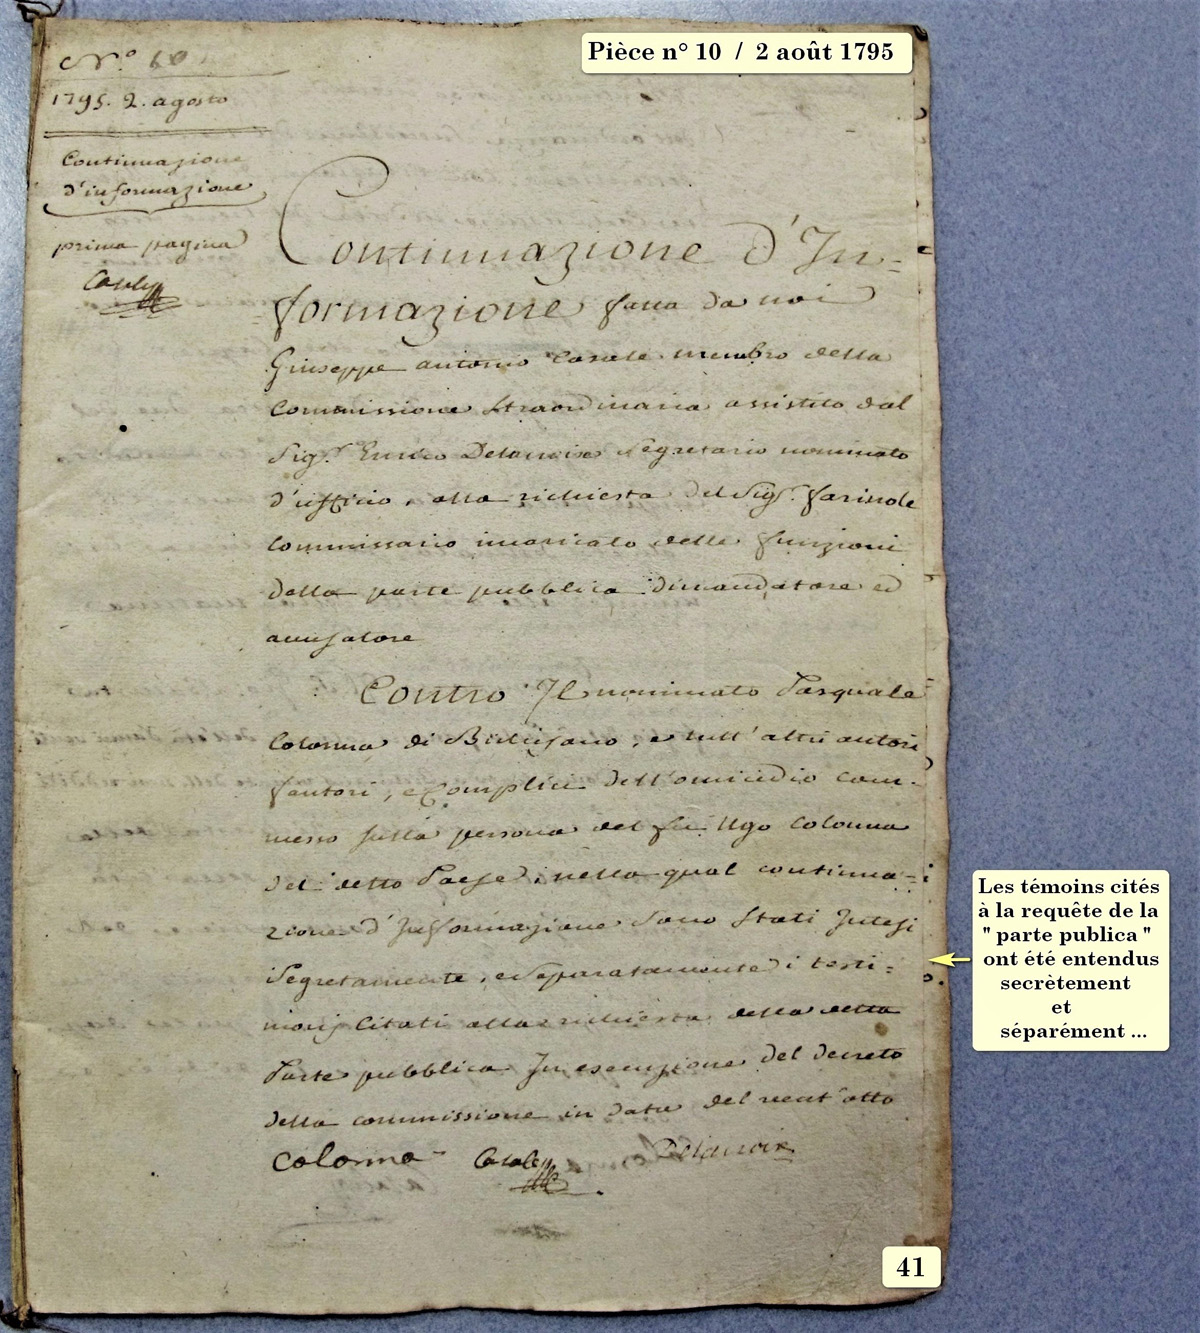 Pièce n° 10 / 2 août 1795
N.° 10
1795. 2. agosto
Continuazione
d'informazione
prima pagina
Casale
Continuazione d'In=
=formazione fatta da noi
Giuseppe antonio Casale membro della
Commissione straordinaria assistito dal
Sig.r Enrico Delanoix Segretario nominato
d'ufficio, alla richiesta del Sig.r farinole
Commissario incaricato delle funzioni
della parte pubblica dimandatore ed
accusatore
Contro Il nominato Pasquale
Colonna di Bicchisano, e tutt'altri autori
fautori, e Complici dell'omicidio com=
messo sulla persona del fu Ugo Colonna
del detto Paese, nella qual continua=
zione d'Informazione sono stati Intesi
segretamente, e separatamente i testi=
monj Citati alla richiesta della detta
Parte pubblica In esecuzione del decreto
della commissione in data del vent'otto
Colonna Casale Delanoix
Les témoins cités
à la requête de la
" parte publica "
ont été entendus
secrètement
et
séparément ...
41